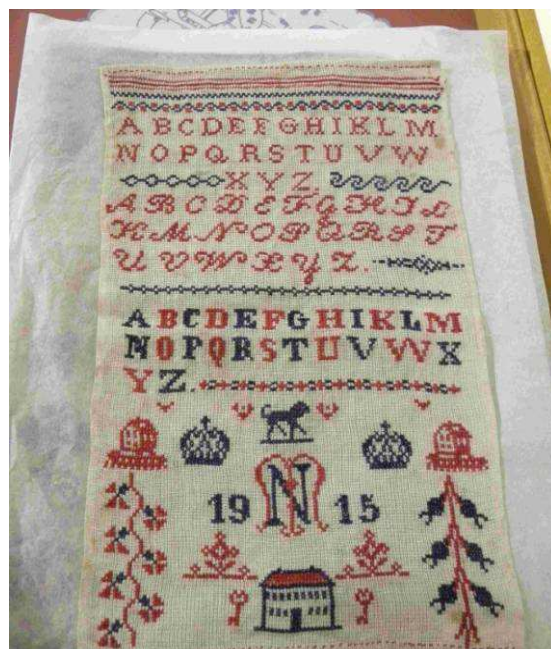 A B C D E F G H I K L M
N O P Q R S T U V W
X Y Z.
A B C D E F G H I L
K M N O P Q R S T
U V W X Y Z.
A B C D E F G H I K L M
N O P Q R S T U V W X
Y Z.
19 N 15